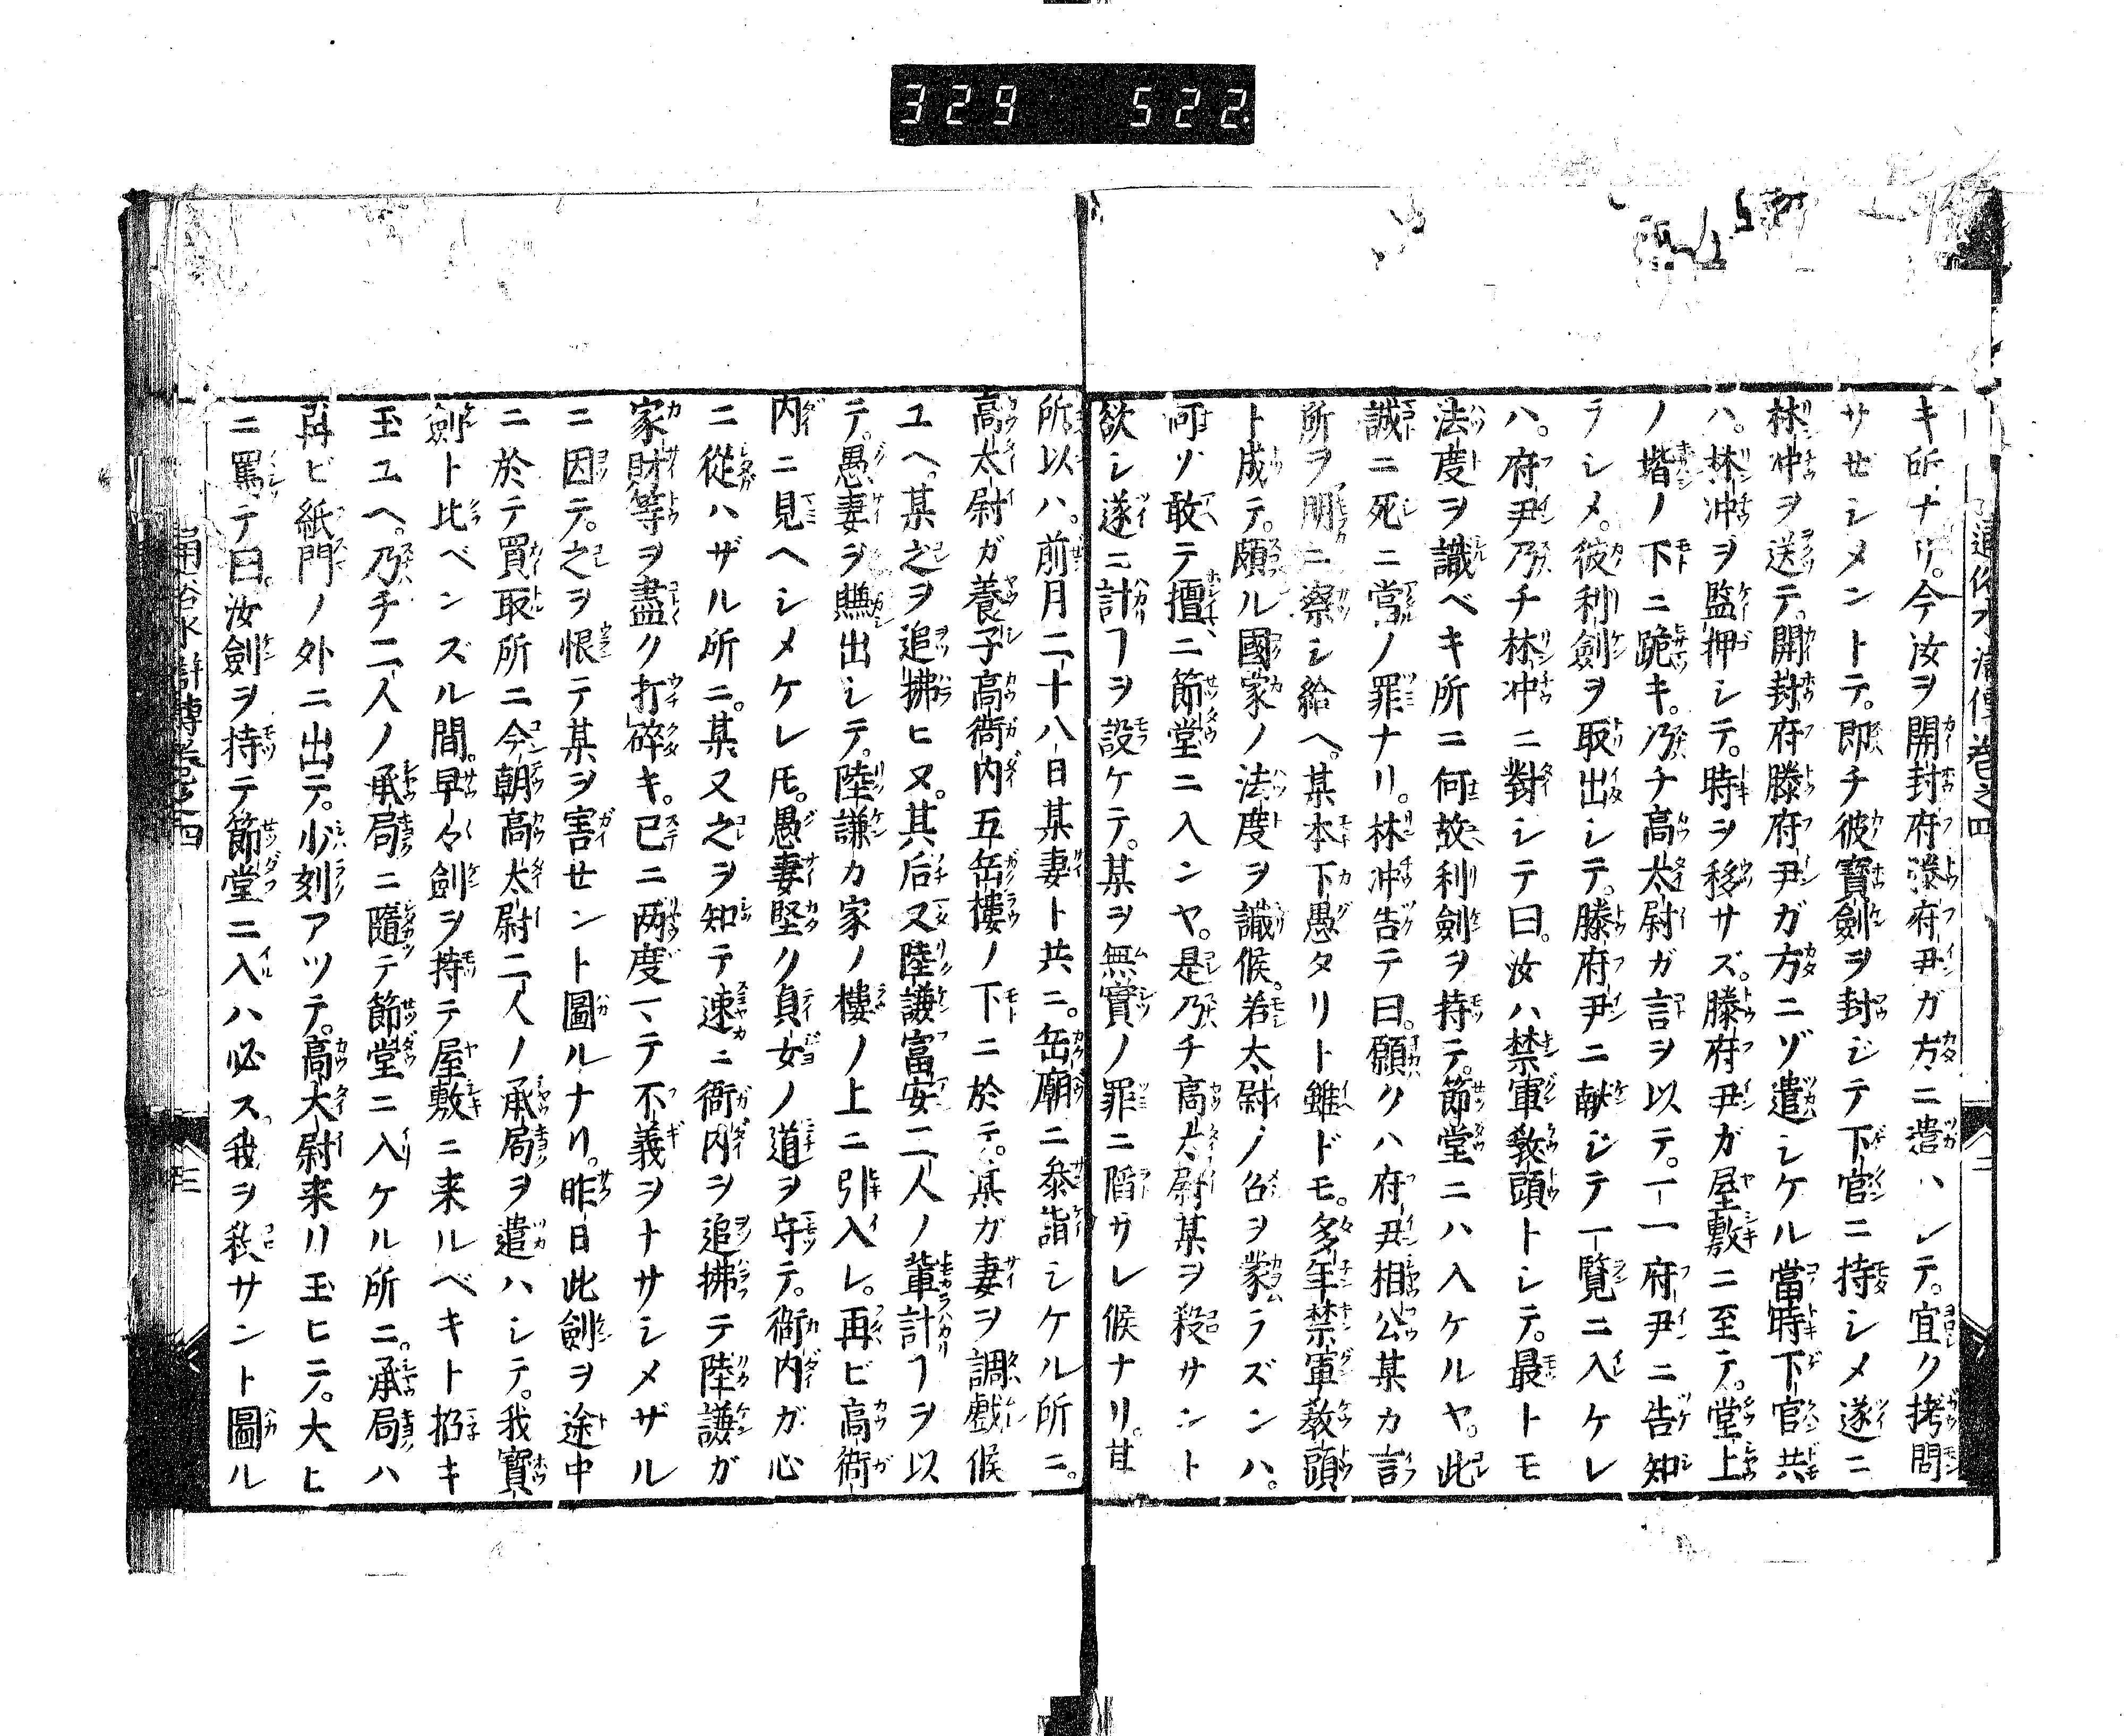 329 522
通俗水滸傳卷之四
キ所ナリ。今汝ヲ開封府滕府尹ガ方ニ遣ハシテ。宜ク拷問
サセシメントテ。即チ彼寶劍ヲ封ジテ下官ニ持シメ遂ニ
林冲ヲ送テ。開封府滕府尹ガ方ニゾ遣シケル當時下官共
ハ。林冲ヲ監押シテ。時ヲ移サズ。滕府尹ガ屋敷ニ至テ。堂上
ノ堦ノ下ニ跪キ。乃チ高太尉ガ言ヲ以テ。一一府尹ニ告知
ラシメ。彼利劍ヲ取出シテ。滕府尹ニ献ジテ一覽ニ入ケレ
ハ。府尹乃チ林冲ニ對シテ曰。汝ハ禁軍敎頭トシテ。最トモ
法度ヲ識ベキ所ニ何故利劍ヲ持テ。節堂ニハ入ケルヤ。此
誠ニ死ニ當ノ罪ナリ。林冲告テ曰。願クハ府尹相公某カ言
所ヲ明ニ察シ給ヘ。某本下愚タリト雖ドモ。多年禁軍敎頭
ト成テ。頗ル國家ノ法度ヲ識候。若太尉ノ召ヲ蒙ラズンハ。
何ソ敢テ擅ニ節堂ニ入ンヤ。是乃チ高太尉某ヲ殺サント
欲シ遂ニ計ヿヲ設ケテ。某ヲ無實ノ罪ニ陷サレ候ナリ。其
所以ハ。前月二十八日某妻ト共ニ。岳廟ニ參詣シケル所ニ。
高太尉ガ養子高衙内五岳樓ノ下ニ於テ。某ガ妻ヲ調戲候
ユヘ。某之ヲ追拂ヒヌ。其后又陸謙富安二人ノ輩計ヿヲ以
テ。愚妻ヲ賺出シテ。陸謙カ家ノ樓ノ上ニ引入レ。再ビ高衙
内ニ見ヘシメケレ𪜈。愚妻堅ク貞女ノ道ヲ守テ。衙内ガ心
ニ從ハザル所ニ。某又之ヲ知テ速ニ衙内ヲ追拂テ陸謙ガ
家財等ヲ盡ク打碎キ。已ニ两度マテ不義ヲナサシメザル
ニ因テ。之ヲ恨テ某ヲ害セント圖ルナリ。昨日此劍ヲ途中
ニ於テ買取所ニ今朝高太尉二人ノ承局ヲ遣ハシテ。我寶
劍ト比ベンズル間。早々劍ヲ持テ屋敷ニ来ルベキト招キ
玉ユヘ。乃チ二人ノ承局ニ隨テ節堂ニ入ケル所ニ。承局ハ
再ビ紙門ノ外ニ出テ。少刻アツテ。高太尉来リ玉ヒテ。大ヒ
ニ罵テ曰。汝劍ヲ持テ節堂ニ入ハ必ス我ヲ殺サント圖ル
通俗水滸傳卷之四
三